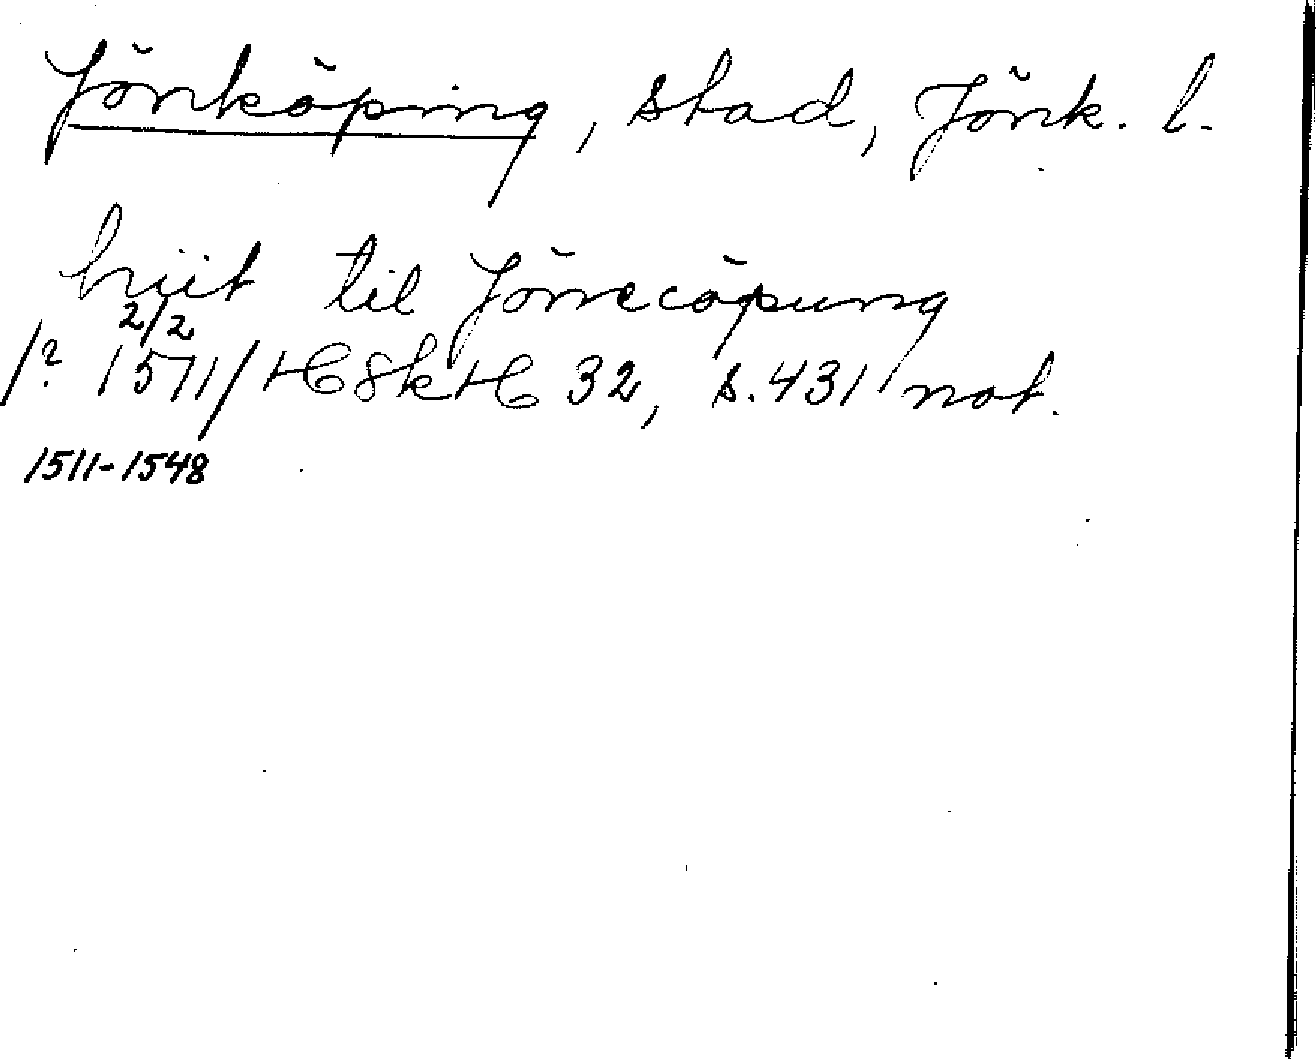 Jönköping, stad, Jönk. l.
hiit til Jönecöpung
2/2
/? 1571/ HSkH 32, s. 431 not.
1511-1548